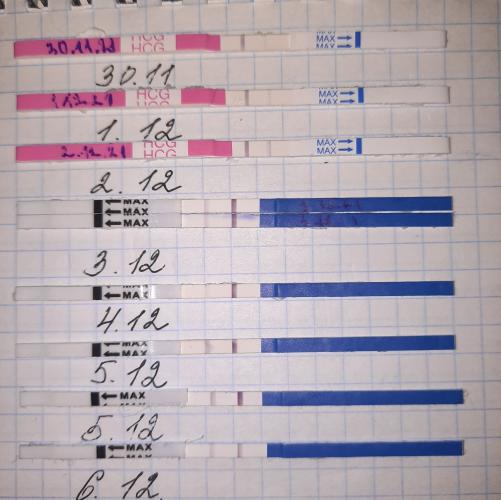 30.11.21 HCG MAX
HCG MAX
30.11
1.12.21 HCG MAX
HCG MAX
1. 12
2.12.21 HCG MAX
HCG MAX
2. 12
MAX
MAX
MAX
3. 12
MAX
4. 12
MAX
MAX
5. 12
MAX
5. 12
MAX
6. 12